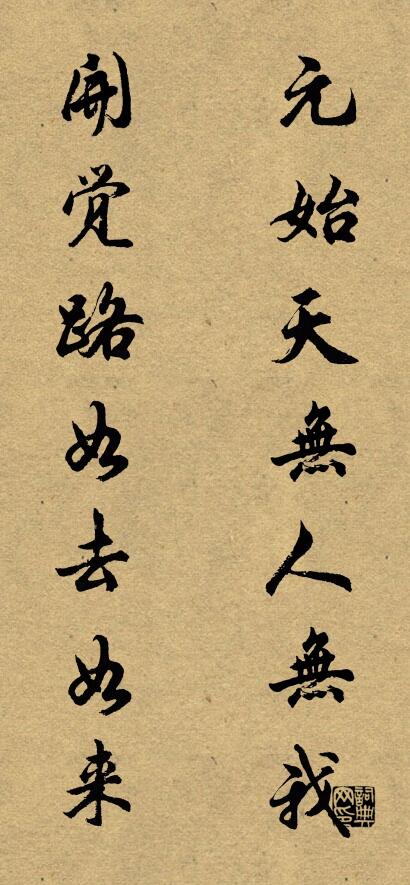 元始天無人無我
開覚路如去如来
詞典網印